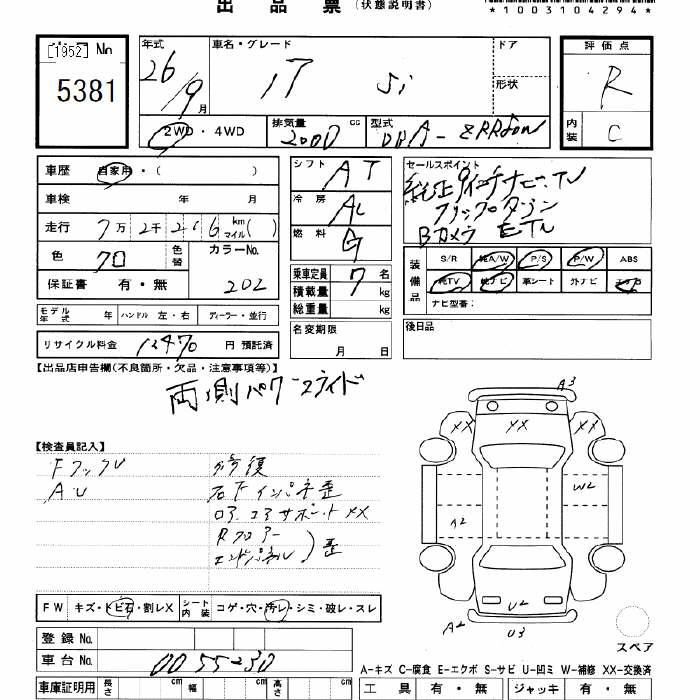 出品票 (状態説明書)
*1003104294*
[1952] No
5381
年式 車名・グレード ドア 評価点
26/9月 Si 形状 R
2WD・4WD 排気量 2000 cc 型式 DBA- 内装 C
車歴 自家用・( ) シフト AT セールスポイント
車検 年 月 冷房 AC
走行 7万2千216 km マイル( ) 燃料 G
フリップダウン
Bカメラ ETC
色 クロ 色替 カラーNo. 202
保証書 有・無
乗車定員 7名
積載量 kg
総重量 kg
装備品 S/R 純A/W P/S P/W ABS
純TV 純ナビ 革シート 外ナビ エアB
ナビ型番:
モデル年式 年 ハンドル 左・右 ディーラー・並行
名変期限 月 日
後日品
リサイクル料金 12470 円 預託済
【出品店申告欄(不良箇所・欠品・注意事項等)】
両側パワースライド
【検査員記入】
A3
XX XX XX
修復
W2
A2
ロアコアサポートXX
Rフロアー
エンドパネル)歪
U2
A2 U3
スペア
FW キズ・トビ石・割レX シート内装 コゲ・穴・汚レ・シミ・破レ・スレ
登録No.
車台No. 0055230
A-キズ C-腐食 E-エクボ S-サビ U-凹ミ W-補修 XX-交換済
車庫証明用 長さ cm 幅 cm 高さ cm 工具 有・無 ジャッキ 有・無